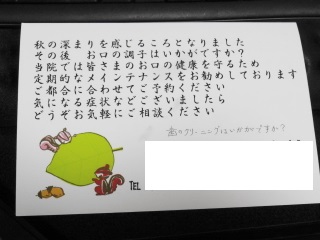 秋の深まりを感じるころとなりました
その後　お口の調子はいかがですか?
当院では皆さまのお口の健康を守るため
定期的なメインテナンスをお勧めしております
ご都合に合わせてご予約ください
気になる症状などございましたら
どうぞお気軽にご相談ください
歯のクリーニングはいかがですか?
TEL